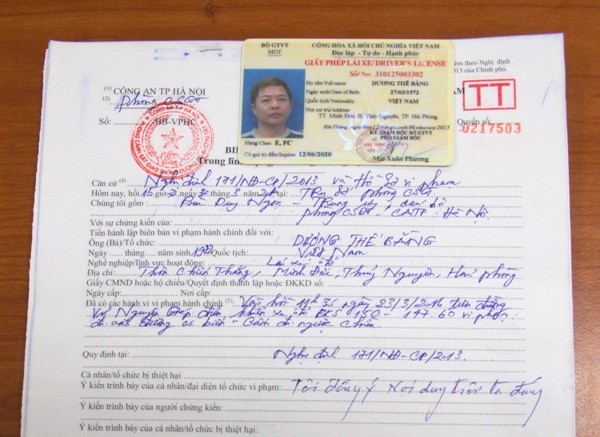 BỘ GTVT
MOT
CỘNG HÒA XÃ HỘI CHỦ NGHĨA VIỆT NAM
Độc lập - Tự do - Hạnh phúc
GIẤY PHÉP LÁI XE/DRIVER'S LICENSE
Số/No: 310125003302
Họ tên/Full name: DƯƠNG THẾ BẰNG
Ngày sinh/Date of Birth: 27/03/1972
Quốc tịch/Nationality: VIỆT NAM
Nơi cư trú/Address:
TT. Minh Đức, H. Thủy Nguyên, TP. Hải Phòng
Hải Phòng, ngày/date
KT. GIÁM ĐỐC SỞ GTVT
PHÓ GIÁM ĐỐC
Hạng/Class: E, FC
Có giá trị đến/Expires: 12/06/2020
Mai Xuân Phương
theo Nghị định
2013 của Chính phủ.
(1) CÔNG AN TP HÀ NỘI
(2) Phòng CSGT
Số: BB-VPHC
TT
Quyển số:
0217503
BIÊ
Trong lĩn
Căn cứ (4) Nghị định 171/NĐ-CP/2013 và Hồ sơ vi phạm
Hôm nay, hồi 15 giờ 3 năm tại phòng CSGT
Chúng tôi gồm: Bùi Duy Ngọc - Trung úy, cán bộ
phòng CSGT, CATP. Hà Nội
Với sự chứng kiến của:
Tiến hành lập biên bản vi phạm hành chính đối với:
Ông (Bà)/Tổ chức: DƯƠNG THẾ BẰNG
Ngày..... tháng..... năm sinh 1972 Quốc tịch: Việt Nam
Nghề nghiệp/lĩnh vực hoạt động: Lái xe ô tô
Địa chỉ: Thôn Chiến Thắng, Minh Đức, Thủy Nguyên, Hải phòng
Giấy CMND hoặc hộ chiếu/Quyết định thành lập hoặc ĐKKD số:
Ngày cấp: Nơi cấp:
Đã có các hành vi vi phạm hành chính (5): Vào hồi 11h35 ngày 23/3/2016 trên đường
Võ Nguyên Giáp điều khiển xe ô tô BKS 15C - 147.60 vi phạm
đi vào đường có biển "Cấm đi ngược chiều
Quy định tại: Nghị định 171/NĐ-CP/2013.
Cá nhân/tổ chức bị thiệt hại
Ý kiến trình bày của cá nhân/đại diện tổ chức vi phạm: Tôi đồng ý
Ý kiến trình bày của người chứng kiến:
Ý kiến trình bày của cá nhân/tổ chức bị thiệt hại: